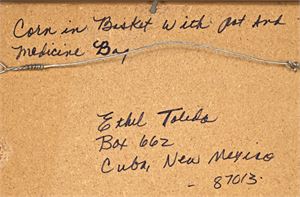 Corn in Basket With pot And
Medicine Bag
Ethel Toledo
Box 662
Cuba, New Mexico
- 87013.